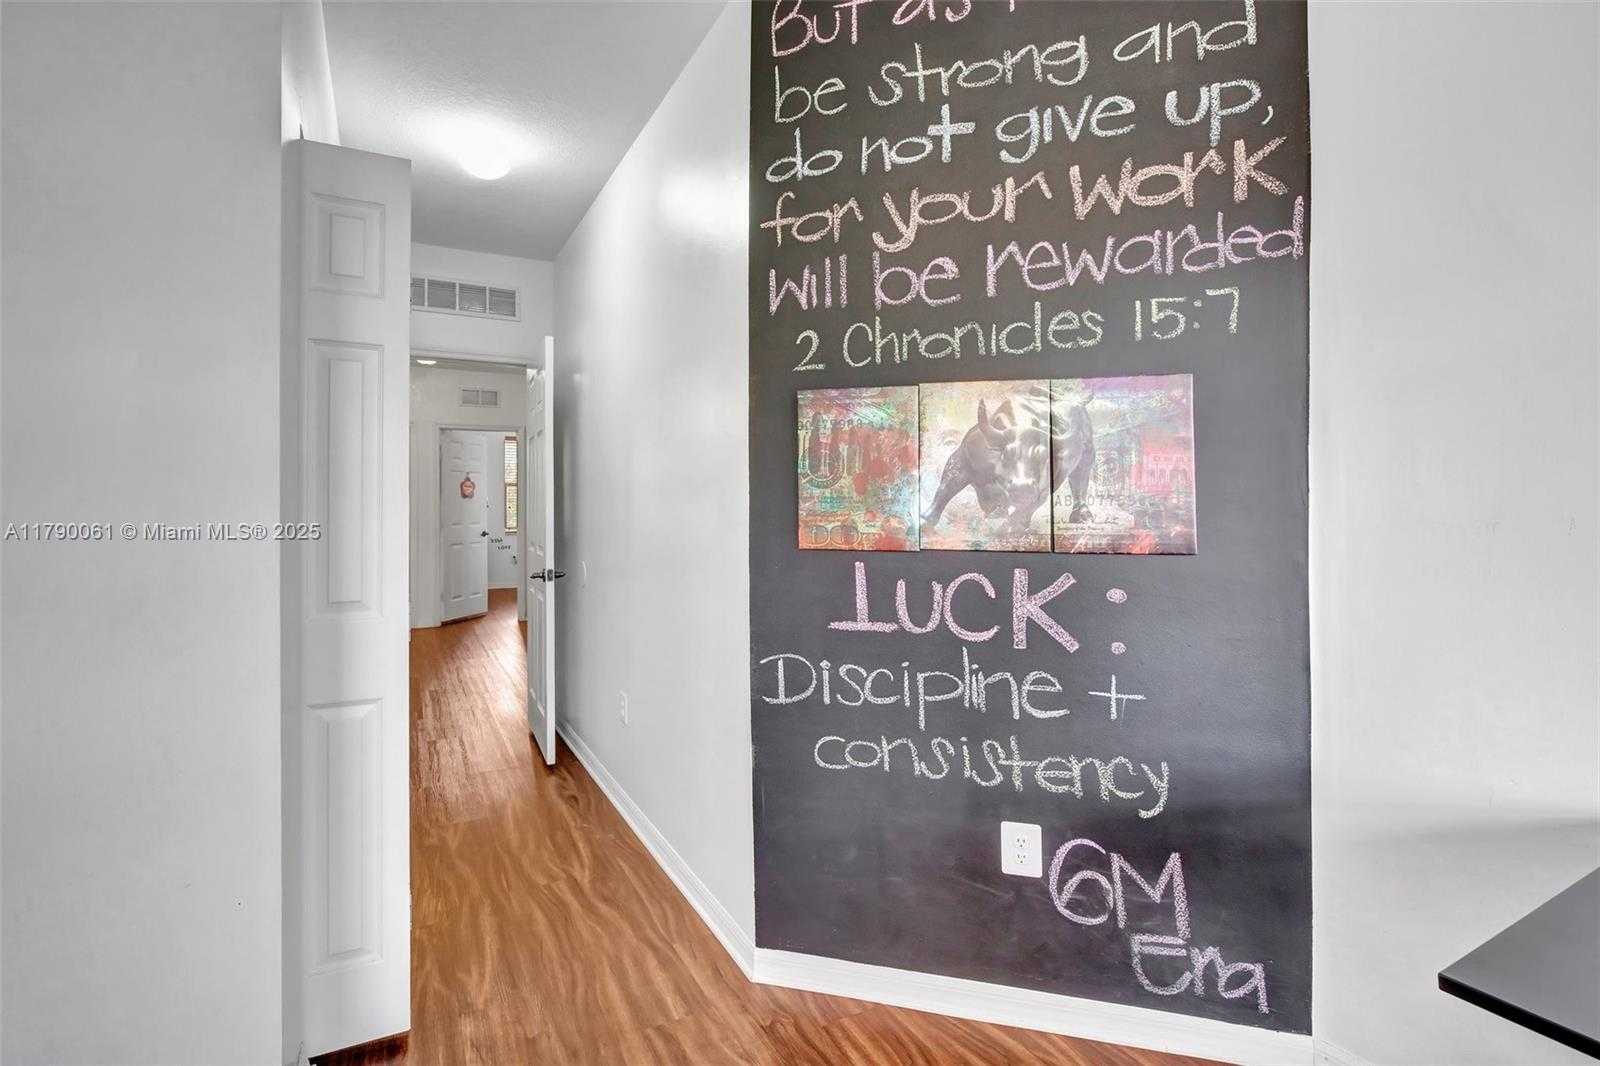 But as
be strong and
do not give up,
for your work
will be rewarded
2 Chronicles 15:7
LUCK:
Discipline +
consistency
6M
Era
A11790061 © Miami MLS® 2025